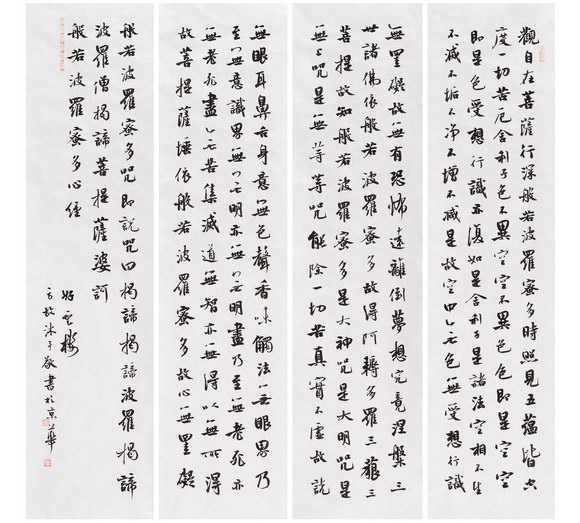 觀自在菩薩行深般若波羅蜜多時照見五藴皆空
度一切苦厄舍利子色不異空空不異色色即是空空
即是色受想行識亦復如是舍利子是諸法空相不生
不滅不垢不净不增不减是故空中無色無受想行識
無罣礙故無有恐怖遠離倒夢想究竟涅槃三
世諸佛依般若波羅蜜多故得阿耨多羅三藐三
菩提故知般若波羅蜜多是大神咒是大明咒是
無上咒是無等等咒能除一切苦真實不虛故説
無眼耳鼻舌身意無色聲香味觸法無眼界乃
至無意識界無無明亦無無明盡乃至無老死亦
無老死盡無苦集滅道無智亦無得以無所得
故菩提薩埵依般若波羅蜜多故心無罣礙
般若波羅蜜多咒即説咒曰揭諦揭諦波羅揭諦
波羅僧揭諦菩提薩婆訶
般若波羅蜜多心經
書於京華